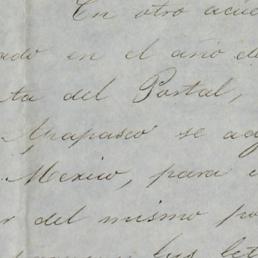 En otro acue
ado en el año de
ta del Portal,
Arapasco se ag
Mexico, para
r del mismo po